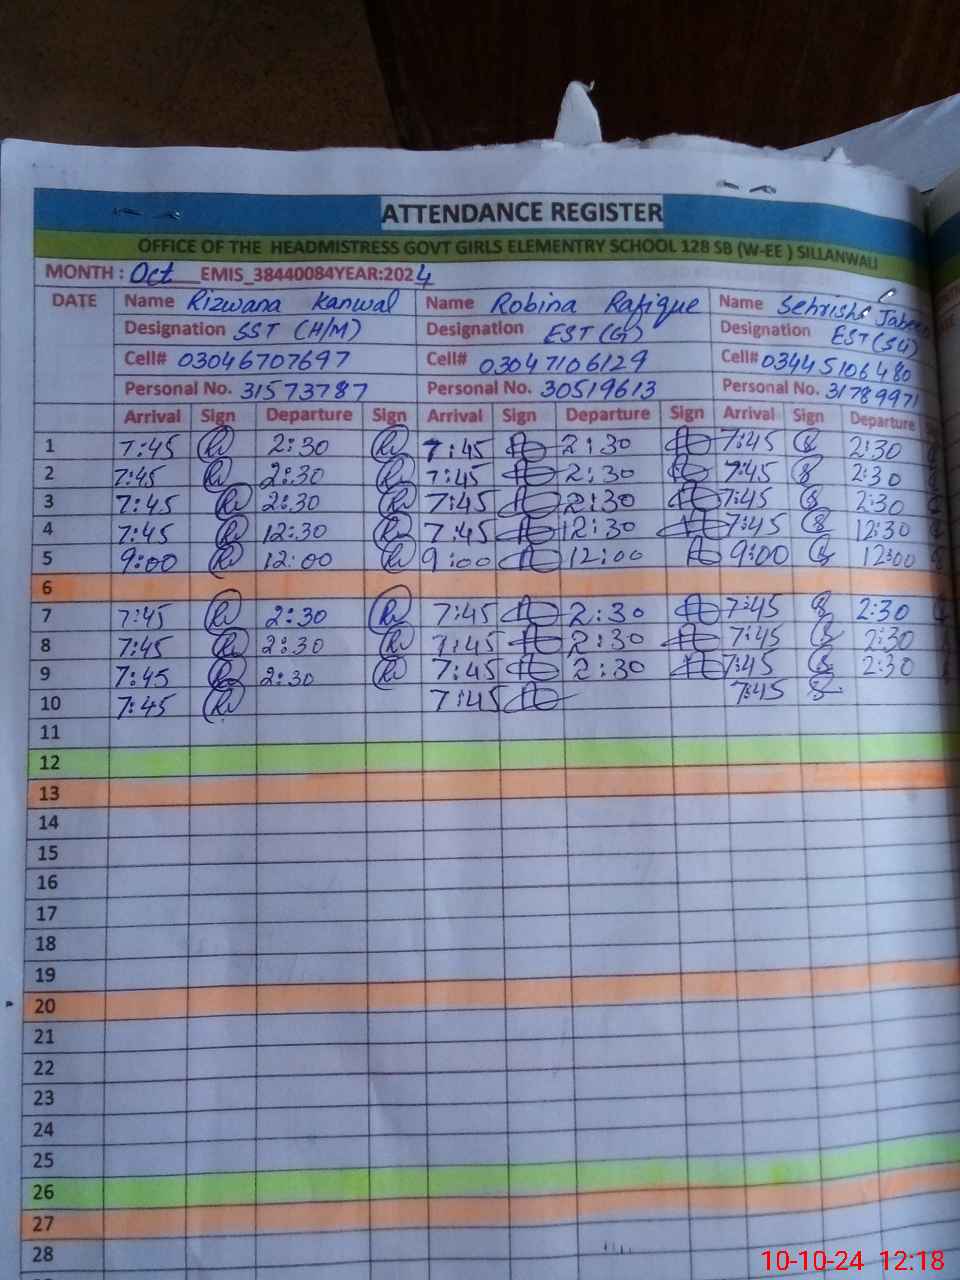 ATTENDANCE REGISTER
OFFICE OF THE HEADMISTRESS GOVT GIRLS ELEMENTRY SCHOOL 128 SB (W-EE ) SILLANWALI
MONTH : Oct EMIS_38440084YEAR:2024
DATE Name Rizwana Kanwal Name Robina Rafique Name Sehrish
Designation SST (H/M) Designation EST (G) Designation EST
Cell# 03046707697 Cell# 03047106129 Cell# 03445106480
Personal No. 31573787 Personal No. 30519613 Personal No. 31789971
Arrival Sign Departure Sign Arrival Sign Departure Sign Arrival Sign Departure
1 7:45 2:30 7:45 2:30 7:45 2:30
2 7:45 2:30 7:45 2:30 7:45 2:30
3 7:45 2:30 7:45 2:30 7:45 2:30
4 7:45 12:30 7:45 12:30 7:45 12:30
5 9:00 12:00 9:00 12:00 9:00 12:00
6
7 7:45 2:30 7:45 2:30 7:45 2:30
8 7:45 2:30 7:45 2:30 7:45 2:30
9 7:45 2:30 7:45 2:30 7:45 2:30
10 7:45 7:45 7:45
11
12
13
14
15
16
17
18
19
20
21
22
23
24
25
26
27
28
10-10-24 12:18